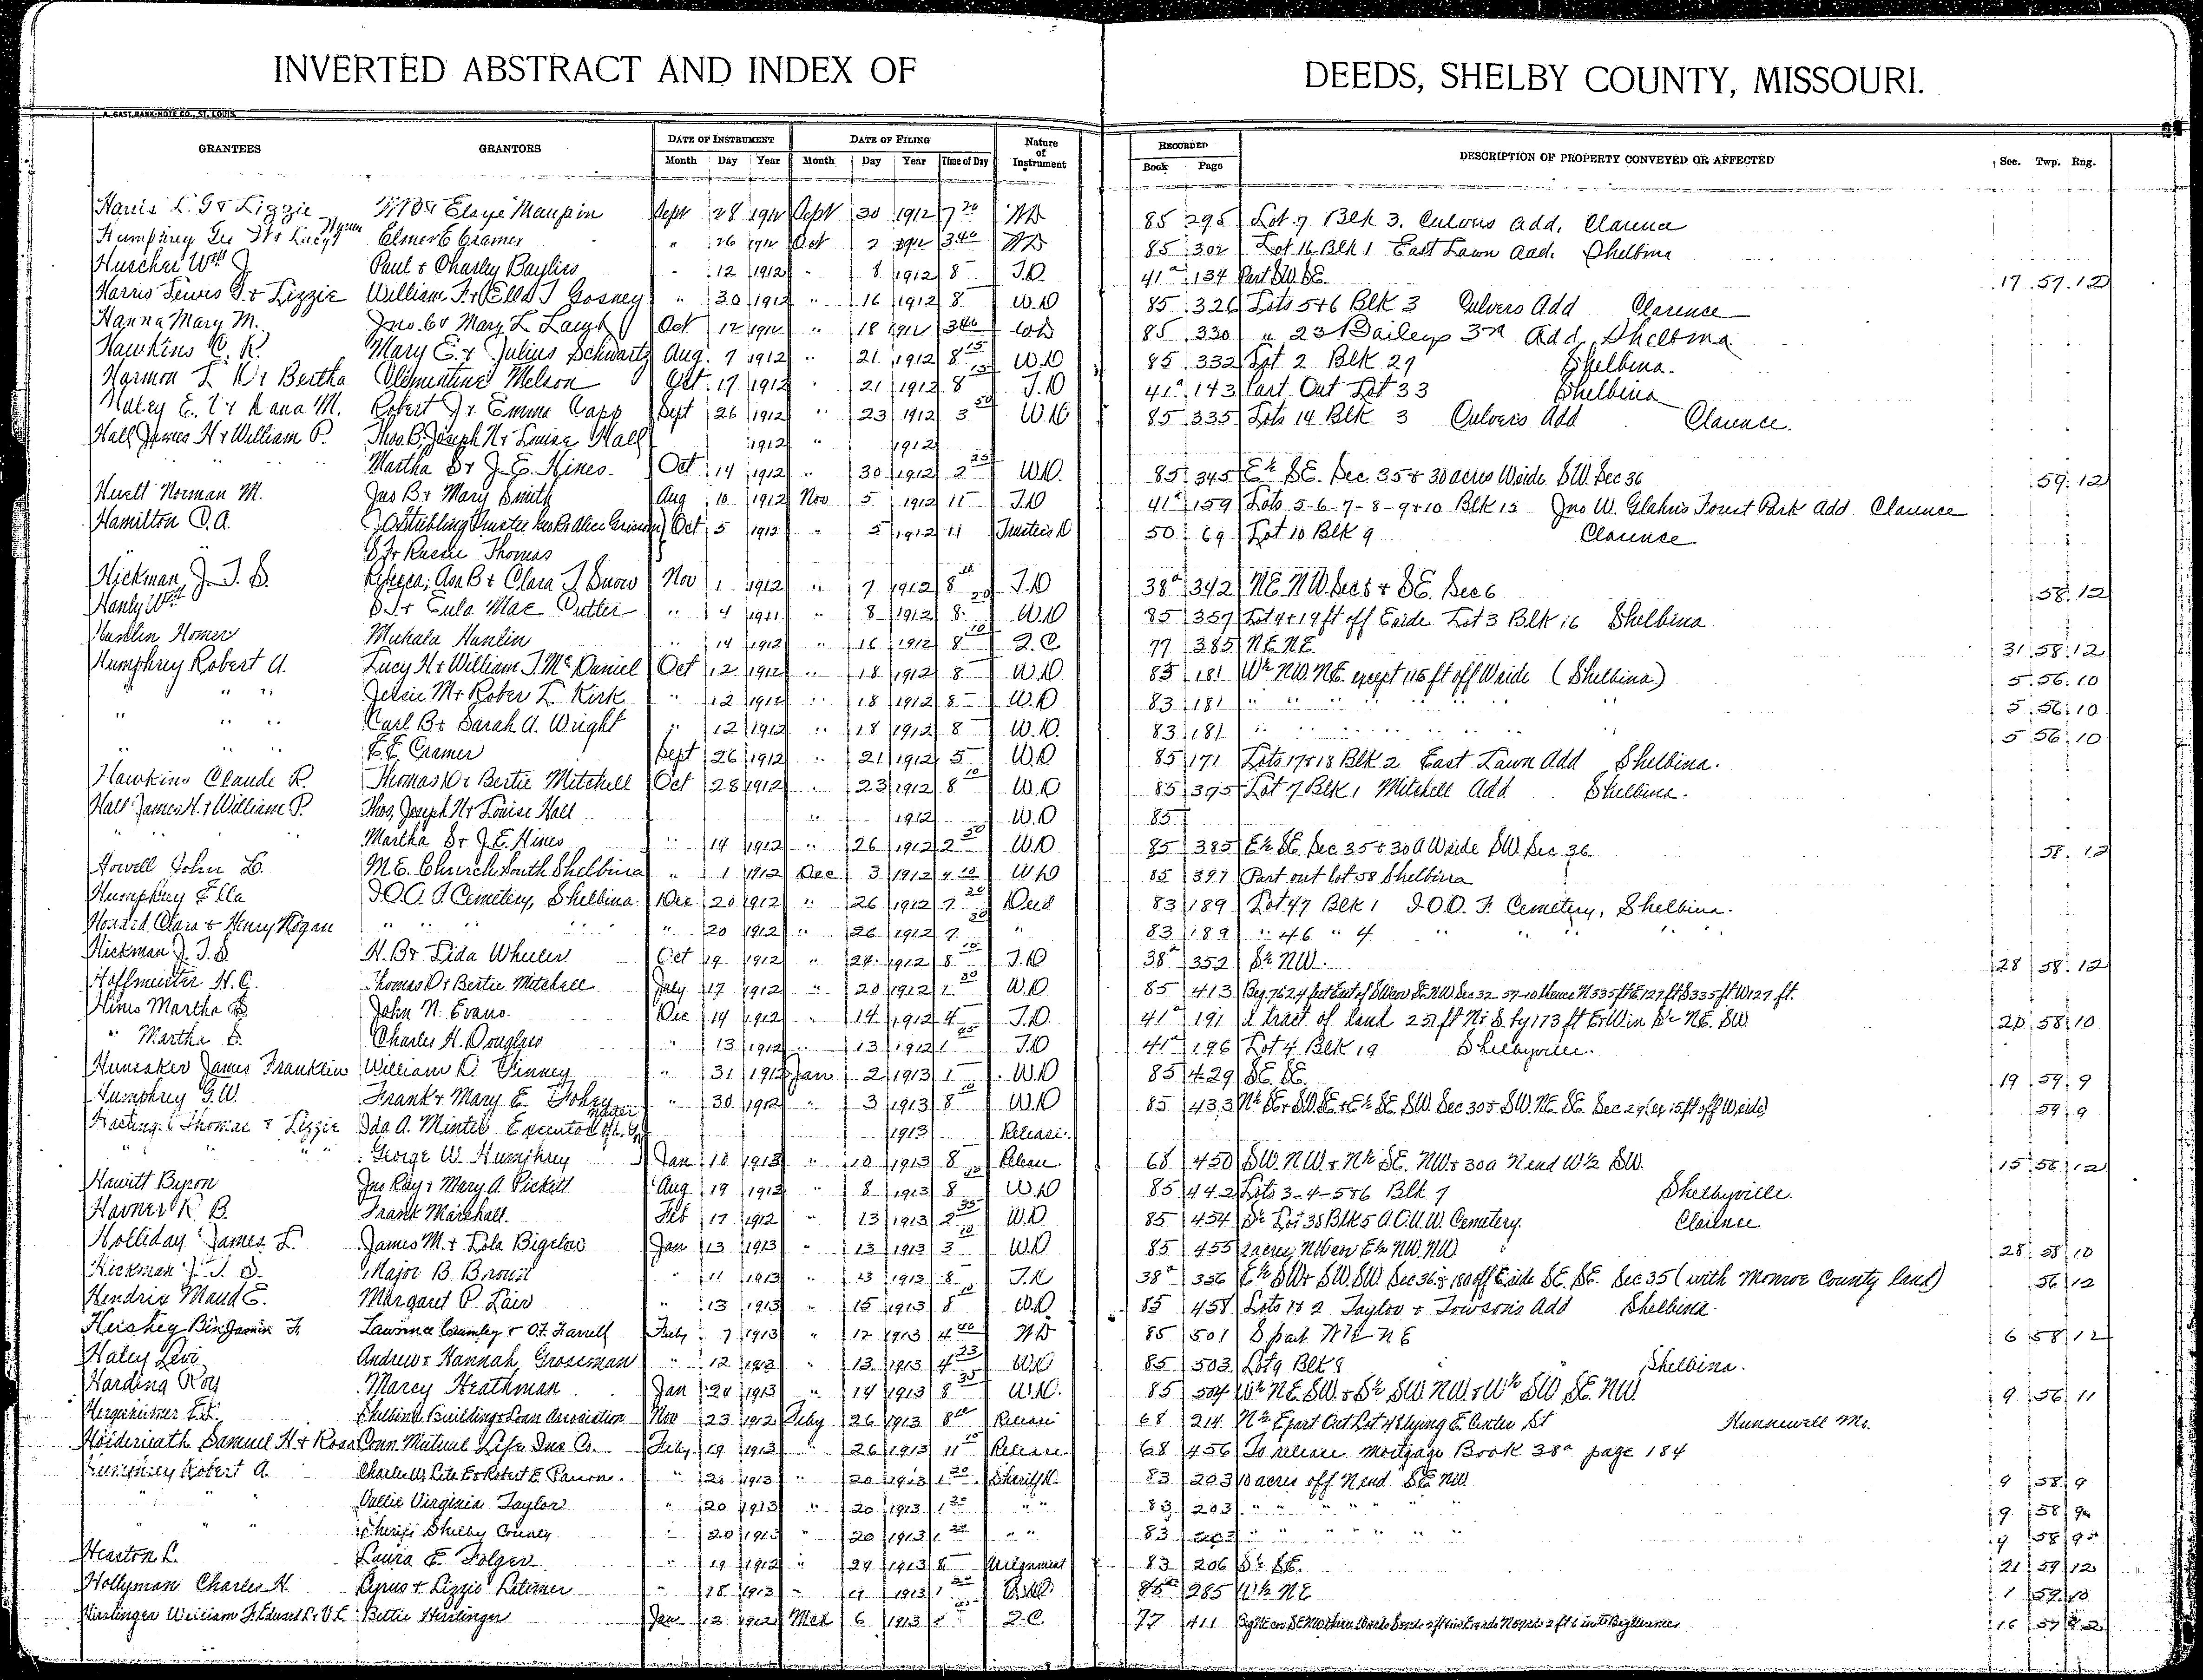 INVERTED ABSTRACT AND INDEX OF DEEDS, SHELBY COUNTY, MISSOURI.
A. GAST BANK NOTE CO., ST. LOUIS
GRANTEES GRANTORS DATE OF INSTRUMENT DATE OF FILING Nature of Instrument RECORDED DESCRIPTION OF PROPERTY CONVEYED OR AFFECTED Sec. Twp. Rng.
Month Day Year Month Day Year Time of Day Book Page
Harris L. G & Lizzie Elsye Maupin Sept 28 1912 Sept 30 1912 7 20 WD 85 295 Lot 7 Blk 3. Culvers add, Clarence
Humphrey Geo W & Lucy Elmer E Cramer " 26 1912 Oct 2 1912 3 40 WD 85 302 Lot 16 Blk 1 East Lawn add. Shelbina
Huscher Wm J Paul & Charley Bayliss " 12 1912 " 8 1912 8 T.D. 41a 134 Part SW SE 17 57 12
Harris Lewis G. & Lizzie William F & Ella J Gosney " 30 1912 " 16 1912 8 W.D 85 326 Lots 5 & 6 Blk 3 Culvers Add Clarence
Hanna Mary M. Jno. C & Mary L Oct 12 1912 " 18 1912 3 40 WD 85 330 " 23 Baileys 3rd Add, Shelbina
Hawkins C. R. Mary E. & Julius Schwartz Aug. 7 1912 " 21 1912 8 15 W.D 85 332 Lot 2 Blk 27 Shelbina.
Harmon L D & Bertha Clementine Melson Oct. 17 1912 " 21 1912 8 15 T.D 41a 143 Part Out Lot 33 Shelbina
Haley E. T & Dana M. Robert J & Emma Capp Sept 26 1912 " 23 1912 3 50 W.D 85 335 Lots 14 Blk 3 Culvers Add Clarence.
Hall James H & William P. Thos B, Joseph N & Louise Hall 1912 " 1912
" " Martha S & J. E. Hines. Oct 14 1912 " 30 1912 2 25 W.D. 85 345 E½ SE. Sec 35 & 30 acres W side SW. Sec 36 59 12
Huett Norman M. Jno B & Mary Smith Aug 10 1912 Nov 5 1912 11 T.D 41a 159 Lots 5-6-7-8-9 & 10 Blk 15 Jno W. Glahns Forest Park Add Clarence
Hamilton O. A. J A Stribling Trustee Oct 5 1912 " 5 1912 11 Trustee's D 50 69 Lot 10 Blk 9 Clarence
Thomas
Hickman, J. T. S. Rebecca; Asa B & Clara J Snow Nov 1 1912 " 7 1912 8 10 T.D 38a 342 NE. NW. Sec 5 & SE. Sec 6 58 12
Hanly Wm S. J & Eula Mae Cutter " 4 1911 " 8 1912 8 20 W.D 85 357 Lot 4 & 19 ft off E side Lot 3 Blk 16 Shelbina.
Hanlin Homer Hanlin " 14 1912 " 16 1912 8 10 Q.C 77 385 NE. NE. 31 58 12
Humphrey Robert A. Lucy H & William J McDaniel Oct 12 1912 " 18 1912 8 W.D 83 181 W½ NW. NE. except 115 ft off W side (Shelbina) 5 56 10
" " " Jessie M & Rober L. Kirk " 12 1912 " 18 1912 8 W.D 83 181 " " " " 5 56 10
" " " Carl B & Sarah A. Wright " 12 1912 " 18 1912 8 W.D. 83 181 " " " " 5 56 10
" " " E. E. Cramer Sept 26 1912 " 21 1912 5 W.D 85 171 Lots 17 & 18 Blk 2 East Lawn Add Shelbina.
Hawkins Claude R. Thomas D & Bertie Mitchell Oct 28 1912 " 23 1912 8 10 W.D 85 375 Lot 7 Blk 1 Mitchell Add Shelbina.
Hall James H. & William P. Thos, Joseph N & Louise Hall " 1912 W.D 85
" " Martha S & J. E. Hines " 14 1912 " 26 1912 2 30 W.D 85 385 E½ SE. Sec 35 & 30 A W side SW. Sec 36. 58 12
Howell John L. M. E. Church South Shelbina " 1 1912 Dec 3 1912 4 10 W D 85 397 Part out lot 58 Shelbina
Humphrey Ella I.O.O.F. Cemetery, Shelbina. Dec 20 1912 " 26 1912 7 30 Deed 83 189 Lot 47 Blk 1 I.O.O.F. Cemetery, Shelbina.
Howard Clara & Henry Hogan " " " " 20 1912 " 26 1912 7 30 " 83 189 " 46 " 4 " " " "
Hickman J. T. S H. B & Lida Wheeler Oct 19 1912 " 24 1912 8 10 T.D 38a 352 S½ NW. 28 58 12
Hoffmeister H. C. Thomas D & Bertie Mitchell July 17 1912 " 20 1912 1 30 W.D 85 413 Beg 762.4 feet East of SW cor SE NW Sec 32-57-10 thence N 335 ft E 127 ft S 335 ft W 127 ft.
Hines Martha S. John N. Evans. Dec 14 1912 " 14 1912 4 T.D 41a 191 A tract of land 251 ft N & S. by 173 ft E & W in S½ NE. SW 20 58 10
" Martha S. Charles H. Douglass " 13 1912 " 13 1912 1 45 T.D 41a 196 Lot 4 Blk 19 Shelbyville.
Hunsaker James Franklin William D. Vinney " 31 1912 Jan 2 1913 1 W.D 85 429 SE. SE. 19 59 9
Humphrey G. W. Frank & Mary E. " 30 1912 " 3 1913 8 10 W.D 85 433 N½ SE & SW SE & E½ SE. SW Sec 30 & SW. NE. SE. Sec 29 (ex 15 ft off W side) 59 9
Hastings Thomas & Lizzie Ida A. Minter Executor 1913 Release.
" " " " George W. Humphrey Jan 10 1913 " 10 1913 8 Release 68 450 SW. NW. & N½ SE. NW. & 30 a N end W½ SW. 15 56 12
Hewitt Byron Jno Ray & Mary A. Pickett Aug 19 1913 " 8 1913 8 10 W.D 85 442 Lots 3-4-5 & 6 Blk 7 Shelbyville.
Havner R. B. Frank Marshall. Feb 17 1912 " 13 1913 2 35 W.D 85 454 S½ Lot 38 Blk 5 A.O.U.W. Cemetery. Clarence
Holliday James L. James M. & Lola Bigelow Jan 13 1913 " 13 1913 3 10 W.D 85 455 2 acres NW cor E½ NW. NW. 28 58 10
Hickman J. T. S. Major B. Brown " 11 1913 " 13 1913 8 T.D 38a 356 E½ SW & SW. SW. Sec 36 & 180 off E side SE. SE. Sec 35 (with Monroe County land) 56 12
Hendrix Maud E. Margaret P. Lair " 13 1913 " 15 1913 8 10 W.D 85 458 Lots 1 & 2 Taylor & Towson's Add Shelbina.
Hershey Benjamin F. Lawrence Crumley & O. F. Farrell Feby 7 1913 " 12 1913 4 40 WD 85 501 S part N½ NE 6 58 12
Haley Levi Andrew & Hannah Grossman " 12 1913 " 13 1913 4 23 W.D 85 503 Lot 9 Blk 8 Shelbina.
Harding Roy Marcy Heathman Jan 24 1913 " 14 1913 8 30 W.D. 85 504 W½ NE. SW. & S½ SW. NW. & W½ SW SE. NW. 9 56 11
Hergsheimer Ed. Shelbina Building & Loan Association Nov 23 1912 Feby 26 1913 8 10 Release 68 214 N½ E part Out Lot 4 lying E. Center St Hunnewell Mo.
Holderieath Samuel H. & Rosa Conn. Mutual Life Ins Co. Feby 19 1913 " 26 1913 11 15 Release 68 456 To release mortgage Book 38a page 184
Humphrey Robert A. Charles W, Lita E & Robert E Parsons. " 20 1913 " 20 1913 1 20 Sheriff D. 83 203 10 acres off N end SE NW 9 58 9
" " Vallie Virginia Taylor " 20 1913 " 20 1913 1 20 " " 83 203 " " " " 9 58 9
" " " Sheriff Shelby County " 20 1913 " 20 1913 1 20 " " 83 203 " " " " 9 58 9
Heaston L. Laura E. Folger " 19 1912 " 24 1913 8 Assignment 83 206 S½ SE. 21 59 12
Hollyman Charles H. Cyrus & Lizzie Latimer " 18 1913 " 1913 1 20 285 W½ NE 1 59 10
Hirrlinger William F, Edward L & V. E Bettie Hirrlinger Jan 12 1912 Mch 6 1913 Q.C. 77 411 16 57